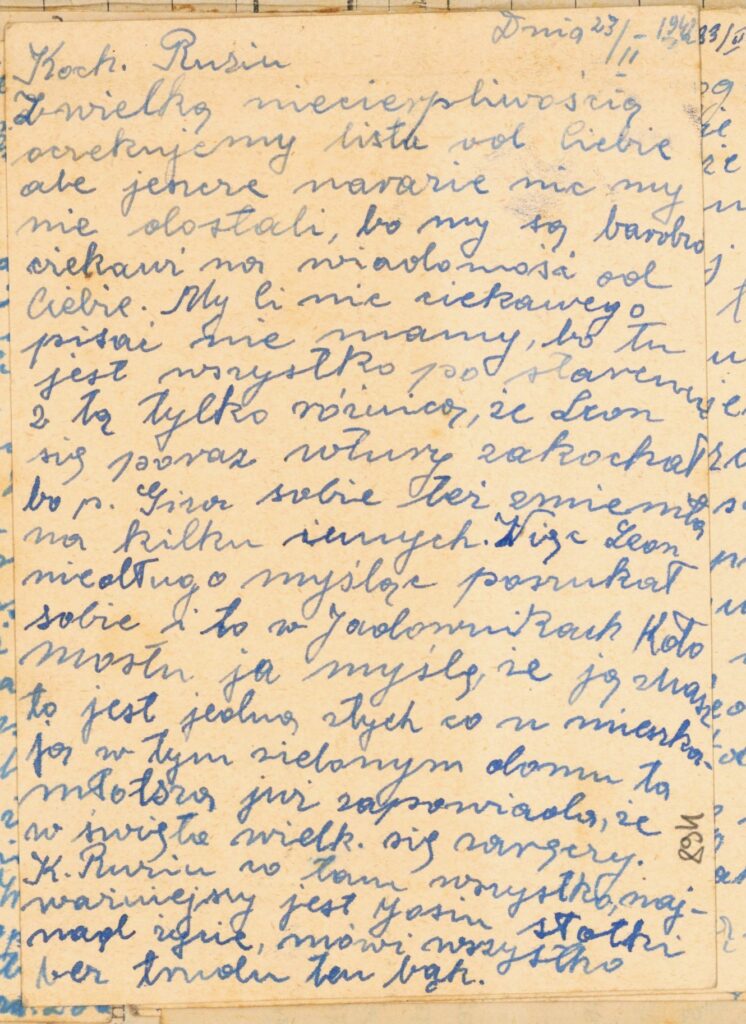 Dnia 23/II 1942
Koch. Ruziu
Z wielką niecierpliwością
oczekujemy listu od Ciebie
ale jeszcze narazie nic my
nie dostali, bo my są bardzo
ciekawi na wiadomość od
Ciebie. My Ci nic ciekawego
pisać nie mamy, bo tu
jest wszystko po staremu
z tą tylko różnicą, że Leon
się poraz wtury zakochał
bo p. sobie też zmieniła
na kilku innych. Więc Leon
niedługo myśląc poszukał
sobie i to w Jadownikach Koło
mostu ja myślę, że ją znasz
to jest jedna ztych co u mieszka-
ją w tym zielonym domu ta
młotsza już zapowiada, że
w święta wielk. się zaręczy.
K. Ruziu co tam wszystko, naj-
ważniejszy jest Josiu słotki
nad życie, mówi wszystko
bez trudu ten bąk.
894